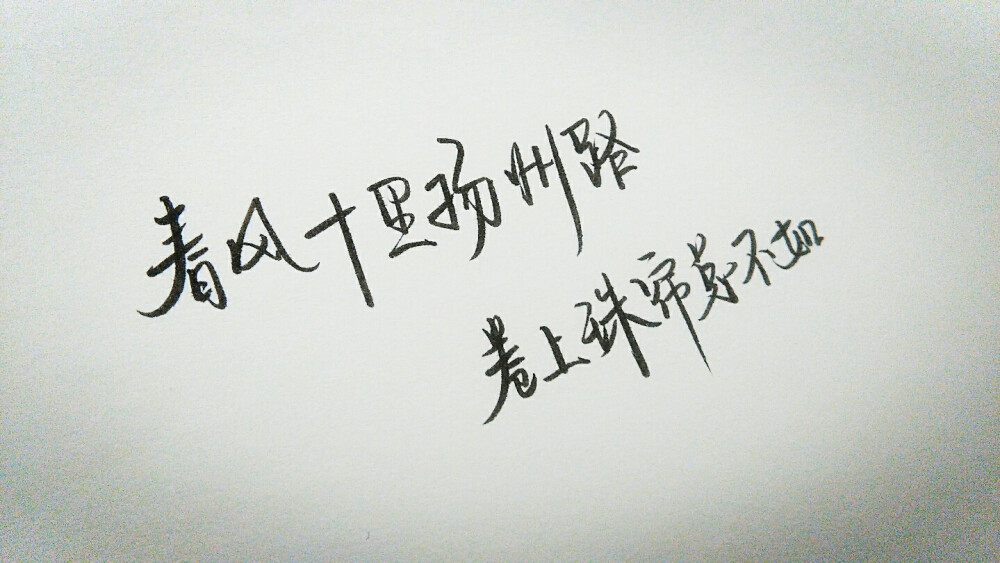 春风十里扬州路
卷上珠帘总不如